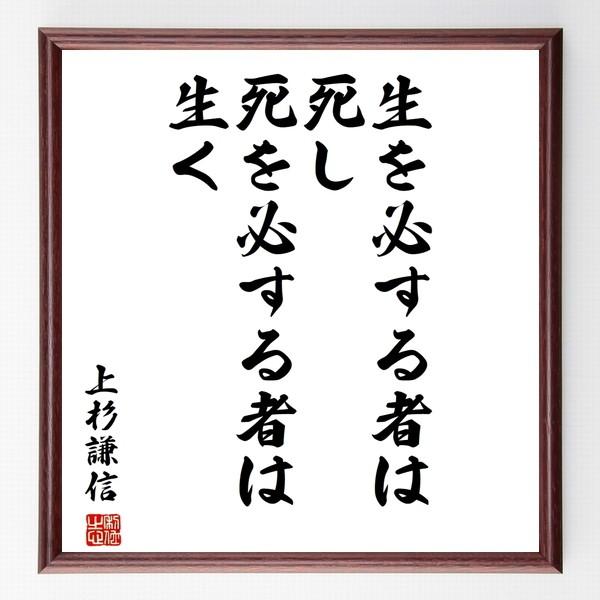 生を必する者は
死し
死を必する者は
生く
上杉謙信